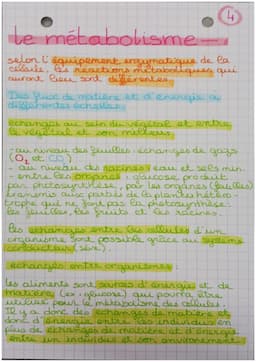 4
le métabolisme
selon l'équipement enzymatique de la
cellule les réactions métaboliques qui
auront lieu sont différentes.
Des flux de matière et d'énergie a
différentes échelles
échanges au sein du végétal et entre
le végétal et son milieu
- au niveau des feuilles : échanges de gazs
(O₂ et CO₂)
- au niveau des racines : eau et sels min.
- entre les organes : glucose produit
par photosynthèse, par les organes (feuilles)
transmis aux parties de la plante hétéro-
trophe qui ne font pas la photosynthèse :
les feuilles, les fruits et les racines.
Les échanges entre les cellules d'un
organisme sont possible grâce au système
conducteur (sève).
échanges entre organismes
les aliments sont sources d'énergie et de
matière (ex : glucose) qui pourra être
utilisée pour le métabolisme des cellules.
Il y a donc des échanges de matière et
donc d'énergie entre les individus en
plus de échanges de matière et d'énergie
entre un individu et son environnement.